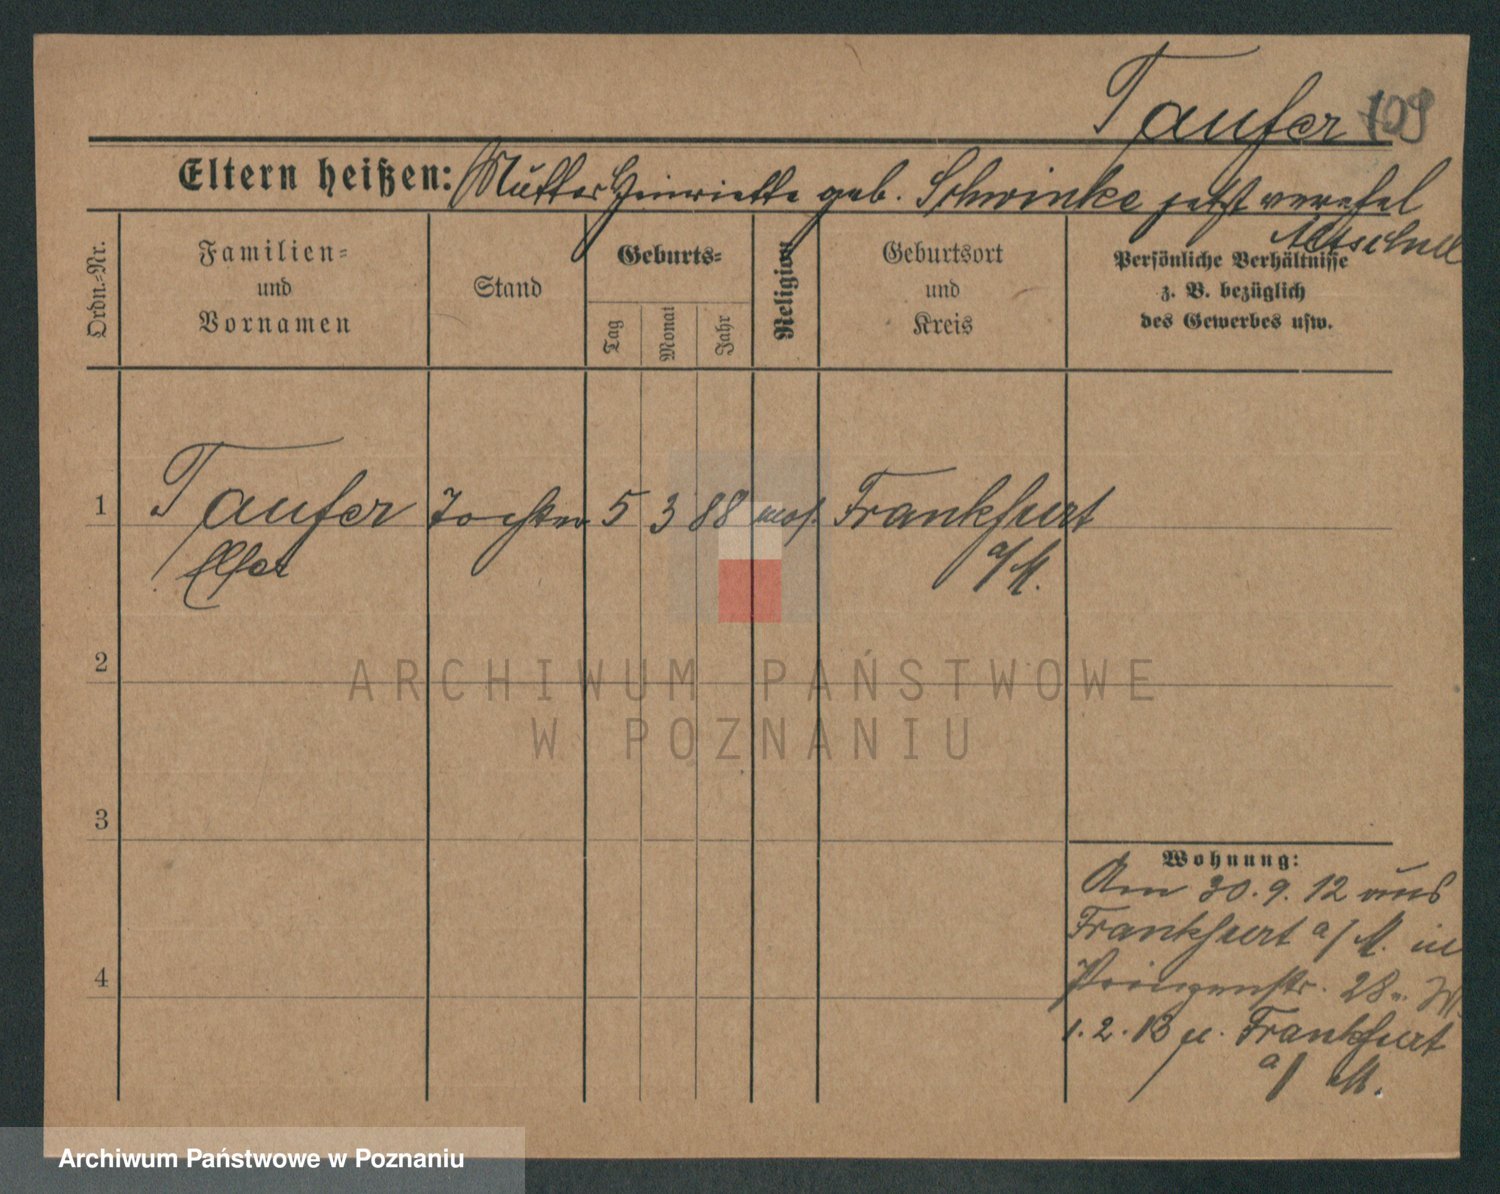 Taufer 109
Eltern heißen: Mutter Henriette geb. Schwinke jetzt verehel
Altschul
Ordn.-Nr.
Familien-
und
Vornamen
Stand
Geburts-
Tag
Monat
Jahr
Religion
Geburtsort
und
Kreis
Persönliche Verhältnisse
z. B. bezüglich
des Gewerbes usw.
1 Taufer Tochter 5 3 88 mos. Frankfurt
Elser a/M.
2
3
4
Wohnung:
Am 30.9.12 aus
Frankfurt a/M. in
Prinzenstr. 28
1.2.13 n. Frankfurt
a/M.
ARCHIWUM PAŃSTWOWE
W POZNANIU
Archiwum Państwowe w Poznaniu